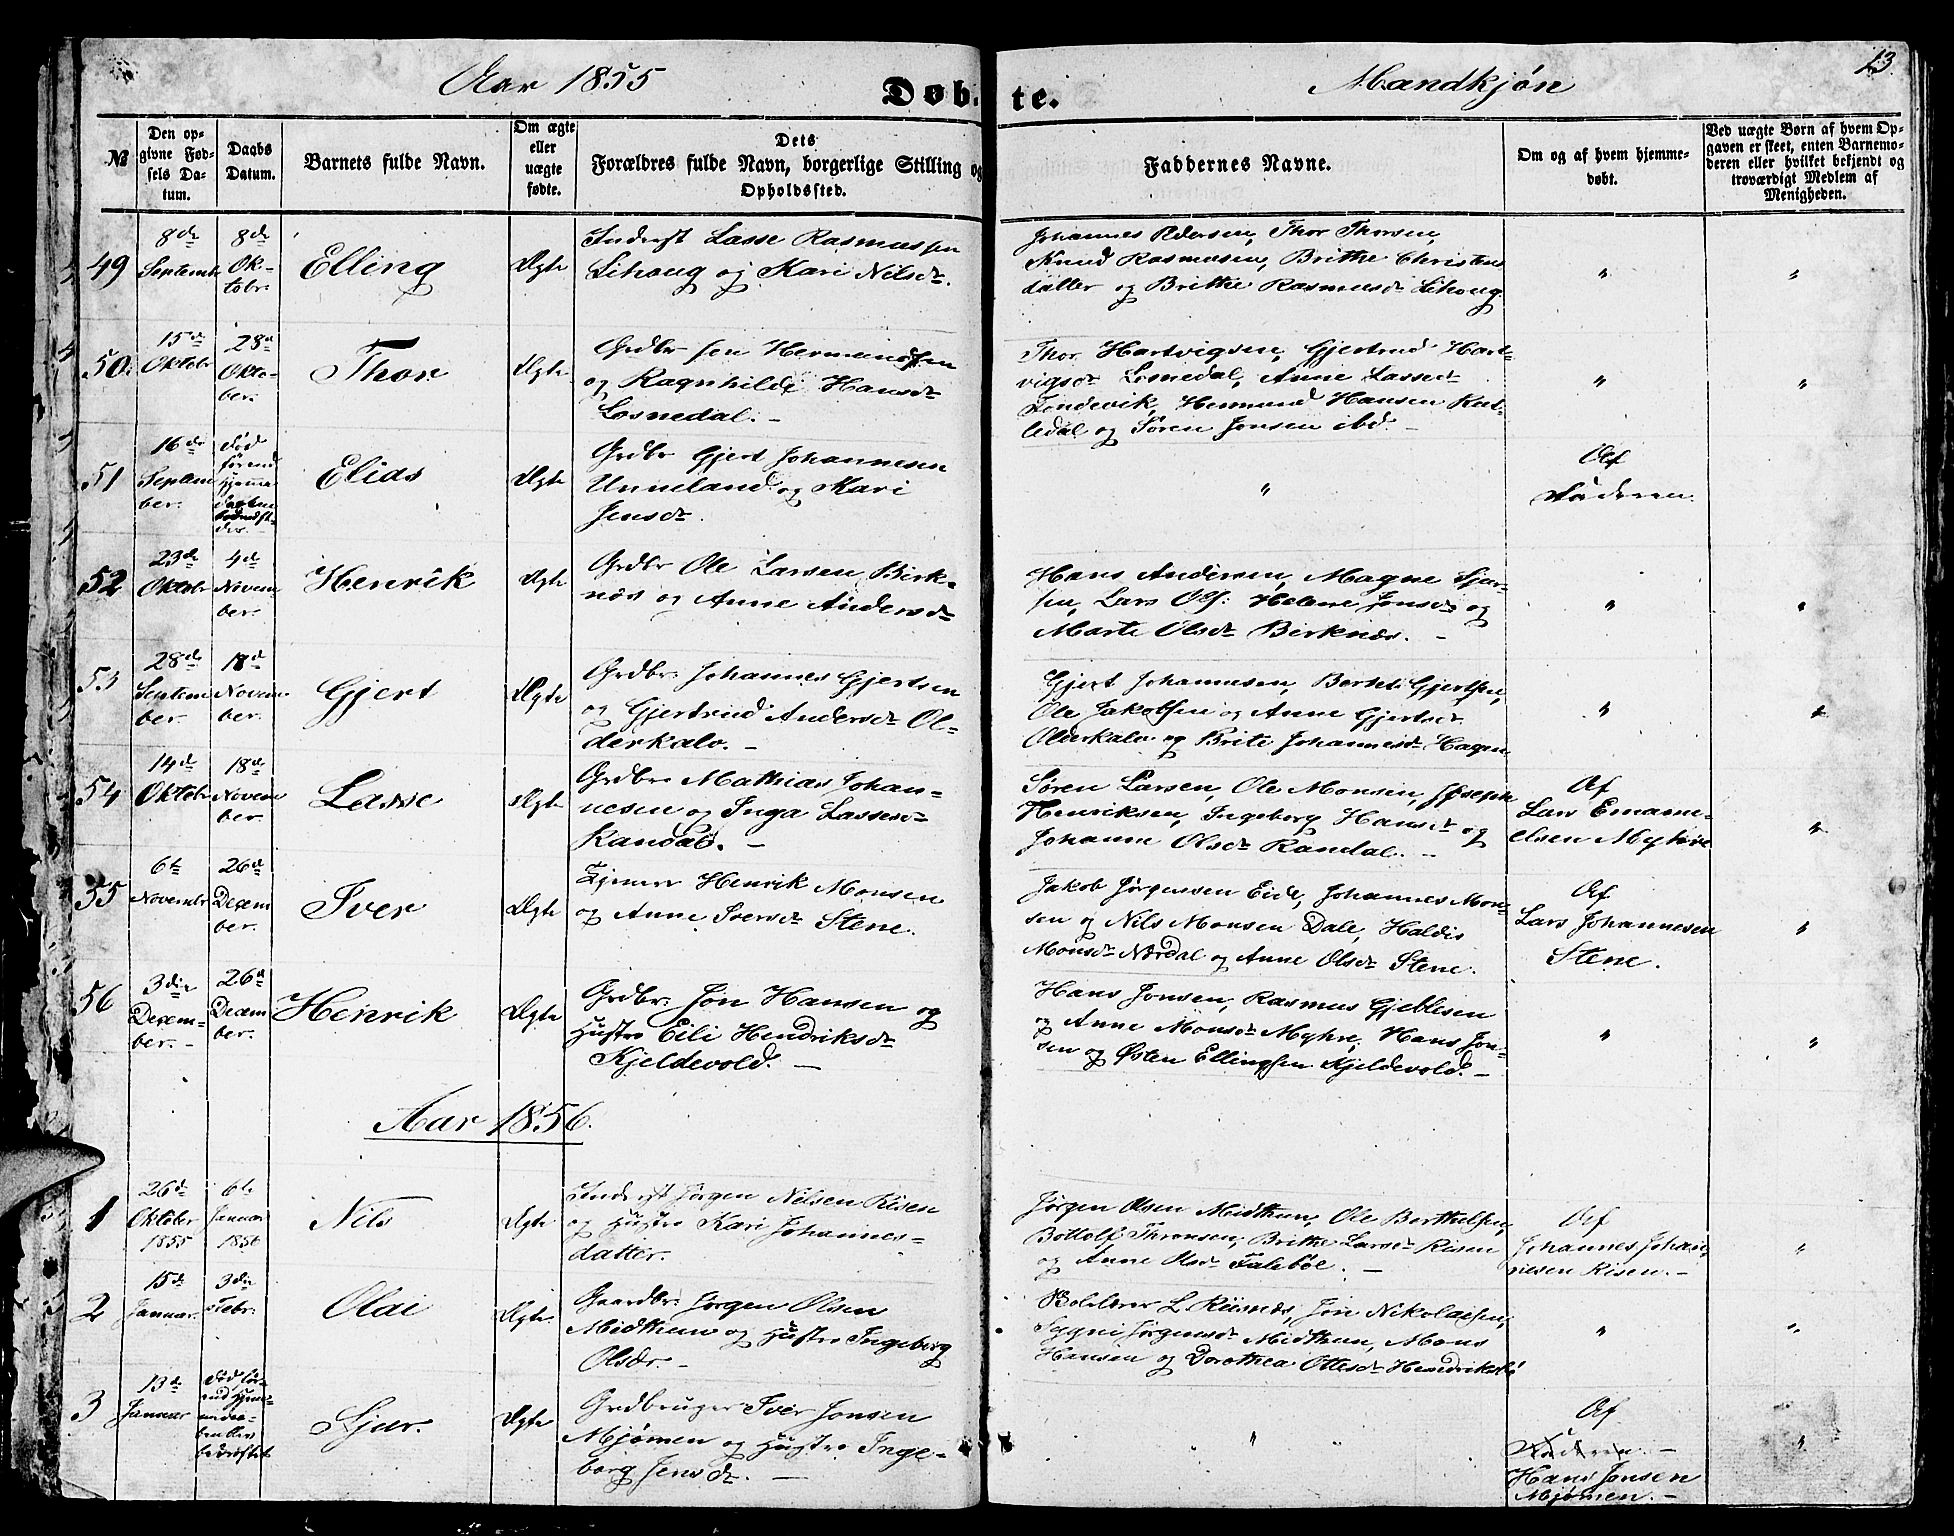 Aar 1855
Døbte.
Mandkjøn
13.
№
Den op-
givne Fød-
sels Da-
tum.
Daabs
Datum.
Barnets fulde Navn.
Om ægte
eller
uægte
fødte.
Dets
Forældres fulde Navn, borgerlige Stilling og
Opholdssted.
Faddernes Navne.
Om og af hvem hjemme-
døbt.
Ved uægte Børn af hvem Op-
gaven er skeet, enten Barnemo-
deren eller hvilket bekjendt og
troværdigt Medlem af
Menigheden.
49
8de
Septembr
8de
Ok-
tobr.
Elling
Ægte
Inderst Lasse Rasmussen
Lihoug og Kari Nilsdr.
Johannes Pedersen, Thor Thorsen,
Knud Rasmusen, Brithe Christens
datter og Brithe Rasmusdr Lihoug
"
"
50.
15de
Oktobr
28de
Okto-
ber.
Thor
Ægte
Grdbr Jen Hermundsen
og Ragnhilde Hansdr
Losnedal. -
Thor Hartvigsen, Gjertrud Hart-
vigsdr Losnedal, Anne Lassedr
Tondevik, Hermund Hansen
ledal og Søren Jonsen ibd. -
"
"
51
16de
Septem
ber.
død
førend
Hjemme
daaben
Elias
Ægte
Grdbr Gjert Johannesen
Unneland og Kari
Jensdr.
"
Af
Faderen.
52
23de
Oktobr
4de
Novem
ber.
Henrik
Ægte
Grdbr Ole Larsen Birk-
nes og Anne Andersdr
Hans Andersen, Magne Sjur-
sen, Lars Ols: Helene Jonsdr og
Marte Olsdr Birknes. -
"
"
53
28de
Septem
ber.
18de
Novem
ber.
Gjert
Ægte
Grdbr. Johannes Gjertsen
og Gjertrud Andersdr Ol-
derkalv. -
Gjert Johannesen, Bertel Gjertsen,
Ole Jakobsen og Anne Gjertsdr
Olderkalv og Brite Johannesdr Hagen
"
"
54
14de
Oktobr
18de
Novem
ber
Lasse
Ægte
Grdbr. Mathias Johan-
nesen og Inga Lassesdr
Randal. -
Søren Larsen, Ole Monsen, Joseph
Henriksen, Ingeborg Hansdr og
Johanne Olsdr Randal. -
Af
Lars Emanu-
elsen Myhre
"
55
6te
Novembr
26de
Decem
ber.
Iver
Ægte
Tjener Henrik Monsen
og Anne Iversdr Stene.
Jakob Jørgensen Eide, Johannes Mon-
sen og Nils Monsen Dale, Haldis
Monsdr Nørdal og Anne Olsdr Stene.
Af
Lars Johannesen
Stene.
"
56
3die
Decem-
ber. -
26de
Decem
ber.
Henrik
Ægte
Grdbr. Jøn Hansen og
Hustro Eili Hendriksdr
Kjeldevold. -
Hans Jonsen, Rasmus Gjeblesen
og Anne Monsdr Myhre, Hans Jon-
sen og Østen Ellingsen Kjeldevold. -
"
"
Aar 1856.
1
26de
Oktober
1855
6te
Januar
1856
Nils
Ægte
Inderst Jørgen Nilsen Risen
og Hustro Kari Johannes-
datter.
Jørgen Olsen Midthun, Ole Berthelsen,
Bottolf Thronsen, Brithe Larsdr Risen
og Anne Olsdr Falebøe. -
Af
Johannes Johan-
nesen Risen. -
"
2
15de
Januar.
3die
Febr.
Olai
Ægte
Gaardbr. Jørgen Olsen
Midthun og Hustro Ingeborg
Olsdr. -
L. Riisnes, Jon Nikolaisen,
Sygni Jørgensdr Midthun, Mons
Hansen og Dorothea Ottesdr
"
"
3
13de
Januar
død før-
end Hjem-
medaa-
ben blev
bekræftet
Sjur.
Ægte
Grdbruger Iver Jonsen
Mjømen og Hustro Inge-
borg Jensdr. -
"
Af
Faderen. -
Hans Jonsen
Mjømen. -
"